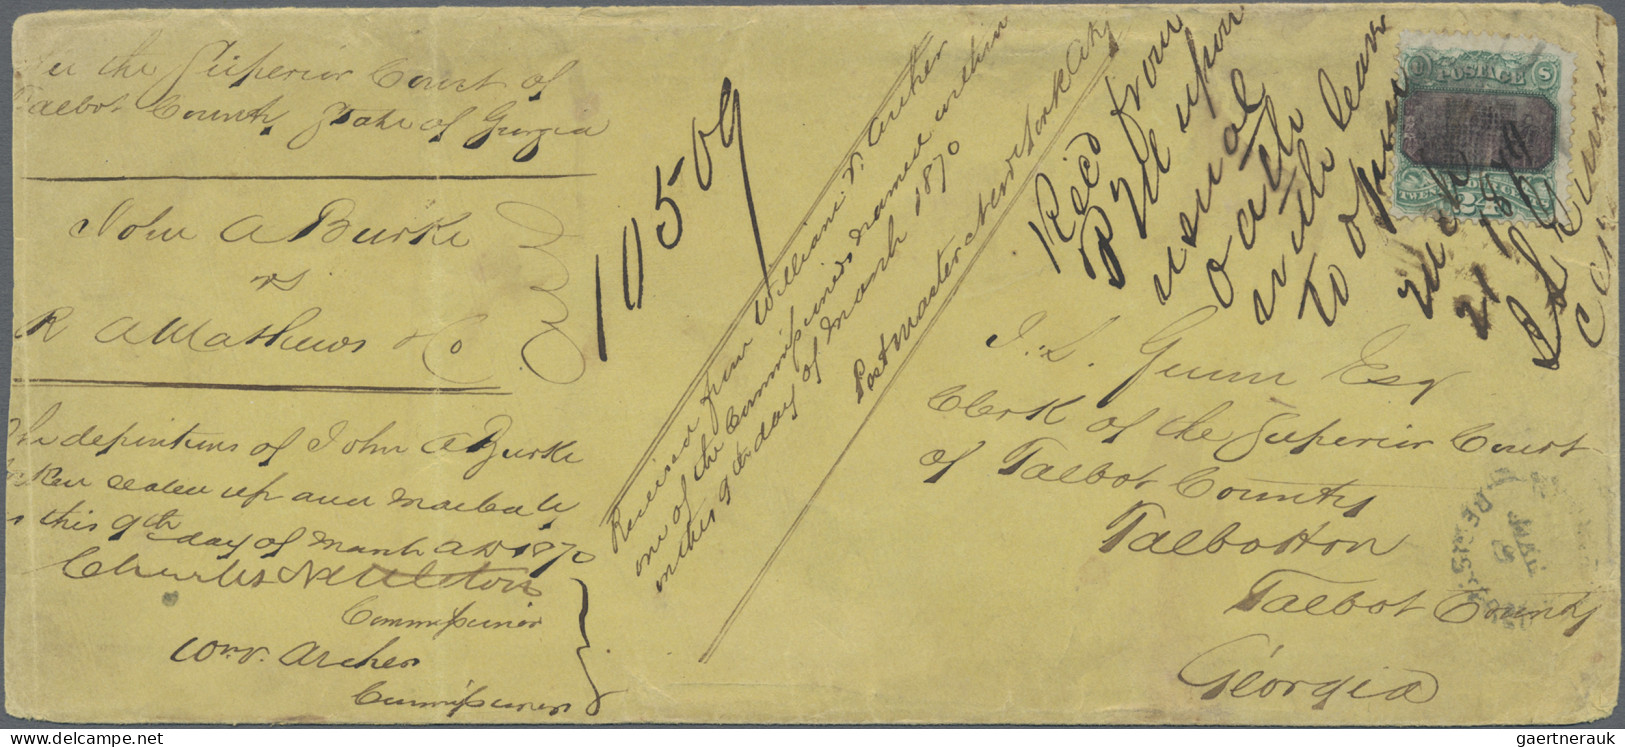 In the Superior Court of
Talbot County, State of Georgia
John A Burke
vs
R A Mathews & Co
The depositions of John A Burke
taken sealed up and mailed
this 9th day of March AD 1870
Charles
Commissioner
Wm. V. Archer
Commissioner
11509
Received from William V. Archer
one of the Commissioners named within
on this 9th day of March 1870
Postmaster New York City
Recd from
P M upon
usual
oath
with leave
to open
March
21 1870
J. L. Gunn
C
POSTAGE
U S
24
J. L. Gunn Esq
Clerk of the Superior Court
of Talbot County
Talbotton
Talbot County
Georgia
REGIS
MAR
9
gaertnerauk
delcampe.net